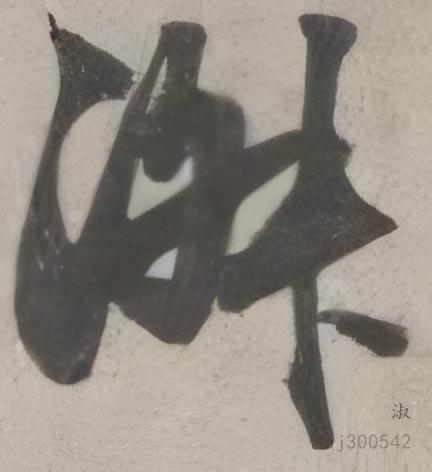 淑
淑
j300542